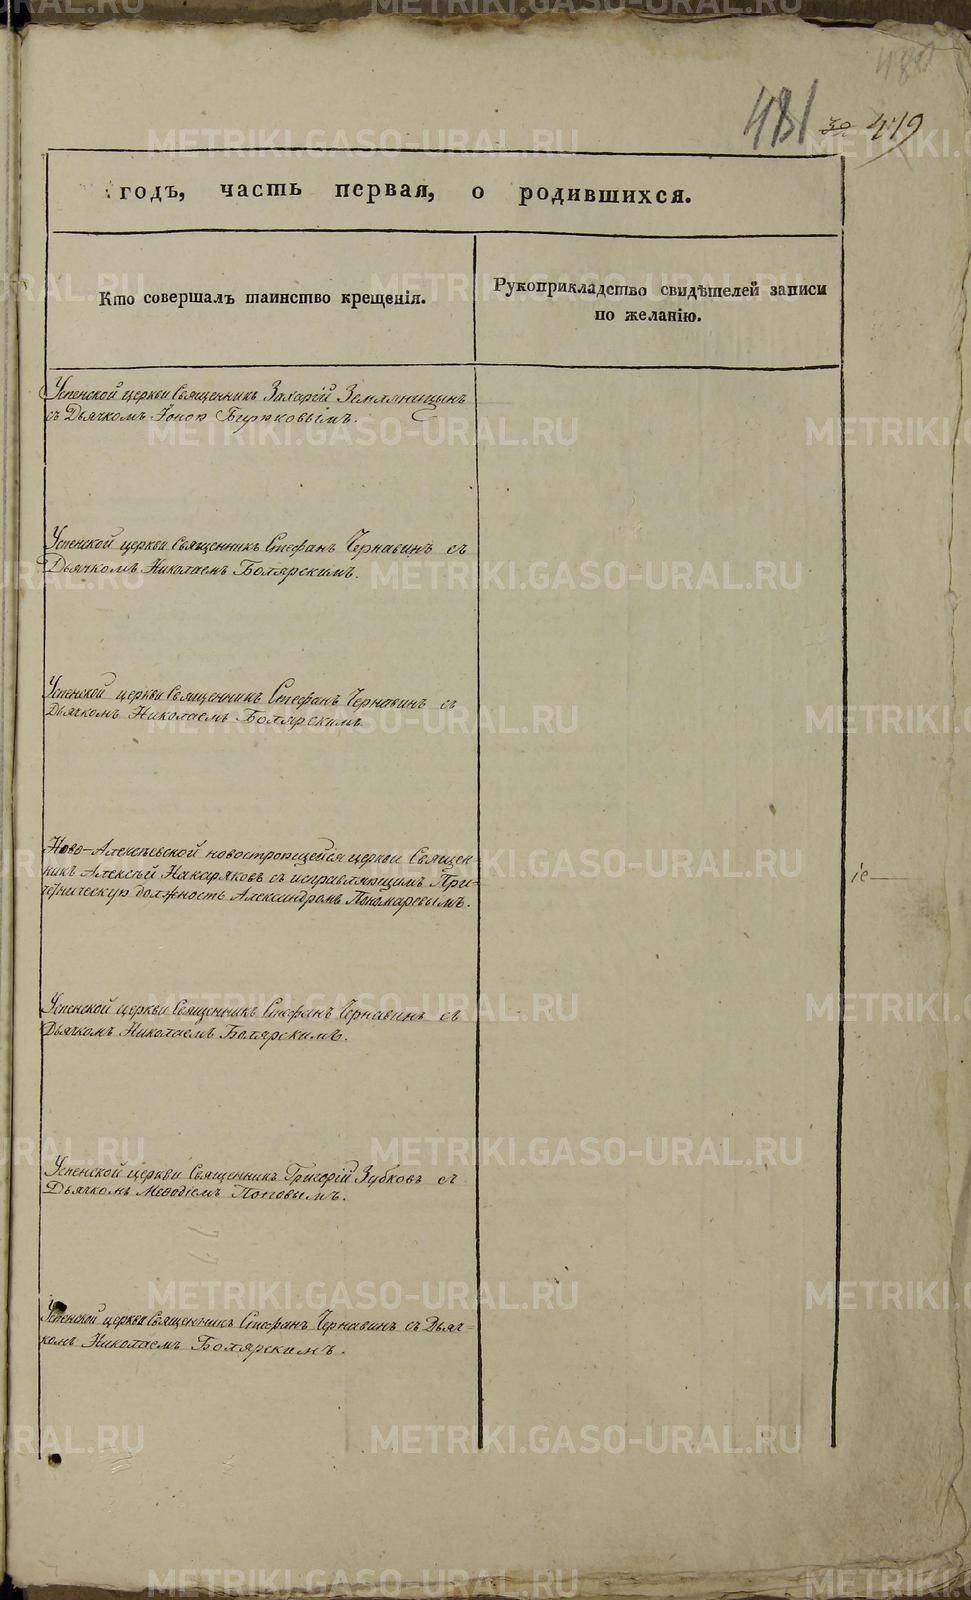 480
481
30 479
годъ, часть первая, о родившихся.
Кто совершалъ таинство крещенія.
Рукоприкладство свидѣтелей записи
по желанію.
Успенской церкви Священникъ Захарій Земляницынъ
съ Дьячкомъ Іоною Бирюковымъ.
Успенской церкви Священникъ Стефанъ Чернавинъ съ
Дьячкомъ Николаемъ Болярскимъ.
Успенской церкви Священникъ Стефанъ Чернавинъ съ
Дьячкомъ Николаемъ Болярскимъ
Ново-Алексѣевской новостроющейся церкви Священ-
никъ Алексѣй Накаряковъ съ исправляющимъ При-
четническую должность Александромъ Пономаревымъ.
Успенской церкви Священникъ Стефанъ Чернавинъ съ
Дьячкомъ Николаемъ Болярскимъ.
Успенской церкви Священникъ Григорій Зубковъ съ
Дьячкомъ Меѳодіемъ Поповымъ.
Успенской церкви Священникъ Стефанъ Чернавинъ съ Дьяч-
комъ Николаемъ Болярскимъ.
METRIKI.GASO-URAL.RU